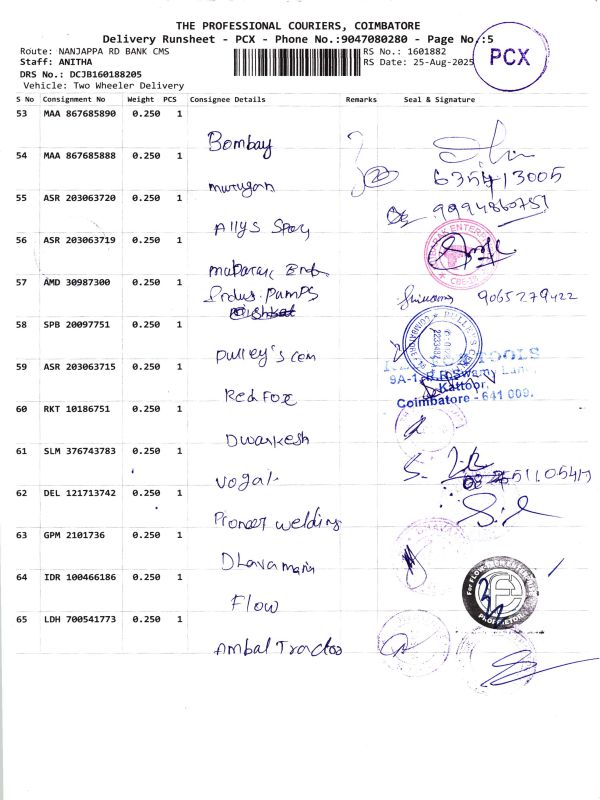 THE PROFESSIONAL COURIERS, COIMBATORE
Delivery Runsheet - PCX - Phone No.:9047080280 - Page No.:5
PCX
Route: NANJAPPA RD BANK CMS
RS No.: 1601882
Staff: ANITHA
RS Date: 25-Aug-2025
DRS No.: DCJB160188205
Vehicle: Two Wheeler Delivery
S No Consignment No Weight PCS Consignee Details Remarks Seal & Signature
53 MAA 867685890 0.250 1
Bombay
54 MAA 867685888 0.250 1
6354413005
murugan
55 ASR 203063720 0.250 1
9994860751
Allys Spay
56 ASR 203063719 0.250 1
mubarak Ent
57 AMD 30987300 0.250 1
Indus. Pumps
9065279422
58 SPB 20097751 0.250 1
Pulley's com
59 ASR 203063715 0.250 1
TOOLS
9A-1, R.R.Swamy
Kattoor,
Coimbatore - 641 009.
Red Fox
60 RKT 10186751 0.250 1
Dwarkesh
61 SLM 376743783 0.250 1
Vogal
62 DEL 121713742 0.250 1
Pioneer welding
63 GPM 2101736 0.250 1
Dhavamani
64 IDR 100466186 0.250 1
Flow
PROPRIETOR
65 LDH 700541773 0.250 1
Ambal Trades